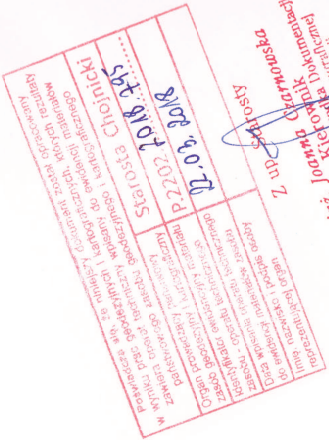 Poświadcza się, że niniejszy dokument został opracowany
w wyniku prac geodezyjnych i kartograficznych, których rezultaty
zawiera operat techniczny wpisany do ewidencji materiałów
państwowego zasobu geodezyjnego i kartograficznego
Organ prowadzący państwowy
zasób geodezyjny i kartograficzny
Starosta Chojnicki
Identyfikator ewidencyjny materiału
zasobu operatu technicznego
P.2202.2018.795
Data wpisania operatu technicznego
do ewidencji materiałów zasobu
22.03.2018
Imię, nazwisko i podpis osoby
reprezentującej organ
Z up. Starosty
Joanna Czarnowska
Kierownik
Dokumentacji